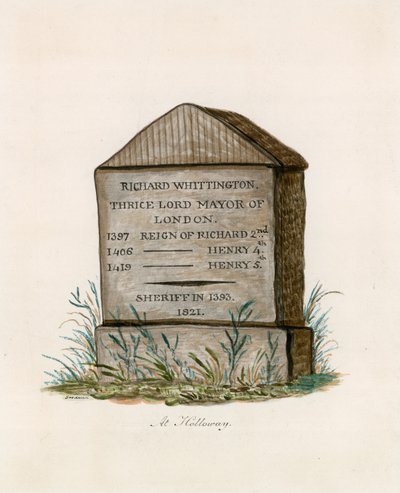 RICHARD WHITTINGTON.
THRICE LORD MAYOR OF
LONDON.
1397 REIGN OF RICHARD 2nd
1406 —— HENRY 4th
1419 —— HENRY 5th
SHERIFF IN 1393.
1821.
At Holloway.